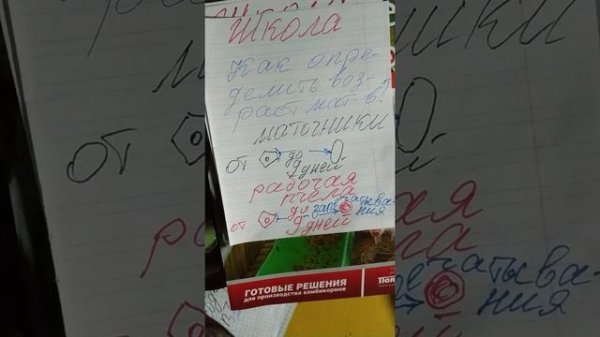 Школа
Как опре-
делить воз-
раст мат. в
маточники
от до
9 дней
рабочая
пчела
от до запечатыва-
9 дней ния
ГОТОВЫЕ РЕШЕНИЯ
для производства комбикормов